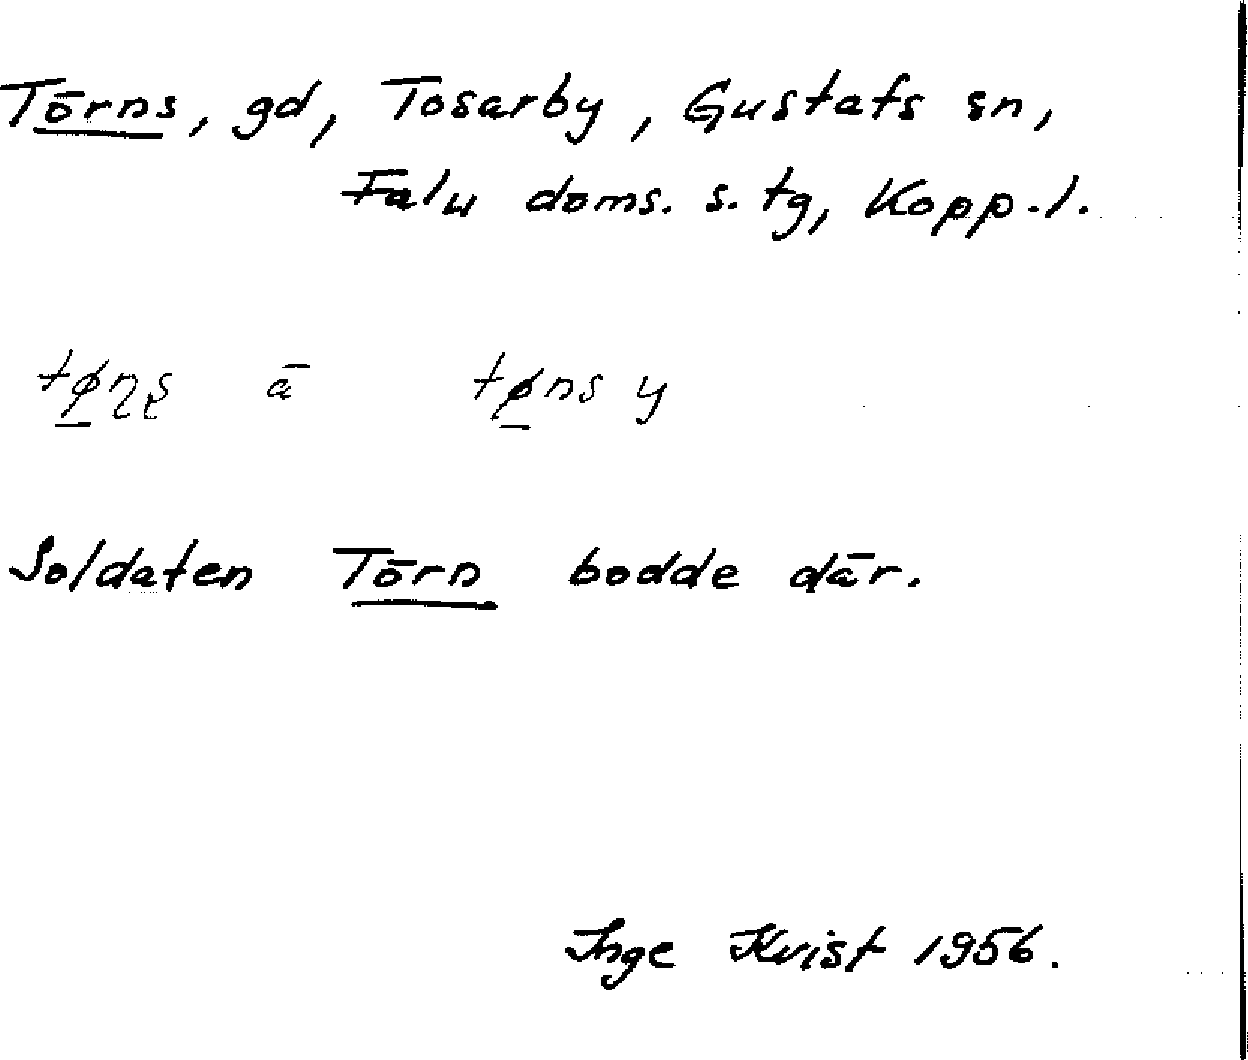 Törns, gd, Tosarby, Gustafs sn,
Falu doms. s. tg, Kopp.l.
tø̲ɳʂ ā tø̲ns y
Soldaten Törn bodde där.
Inge Kvist 1956.